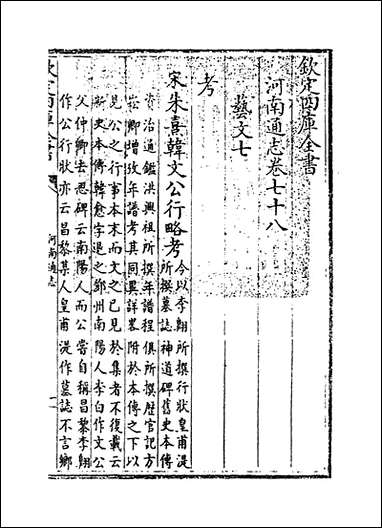 欽定四庫全書
河南通志卷七十八
藝文七
考
宋朱熹韓文公行略考
今以李翺所撰行狀皇甫湜
所撰墓誌神道碑舊史本傳
資治通鑑洪興祖所撰年譜程俱所撰歷官記方
崧卿增攷年譜考其同異詳畧附於本傳之下以
見公之行事本末而文之已見於集者不復載云
新史本傳韓愈字退之鄧州南陽人李白作文公
父仲卿去思碑云南陽人而公嘗自稱昌黎李翺
作公行狀亦云昌黎某人皇甫湜作墓誌不言鄉
欽定四庫全書
河南通志